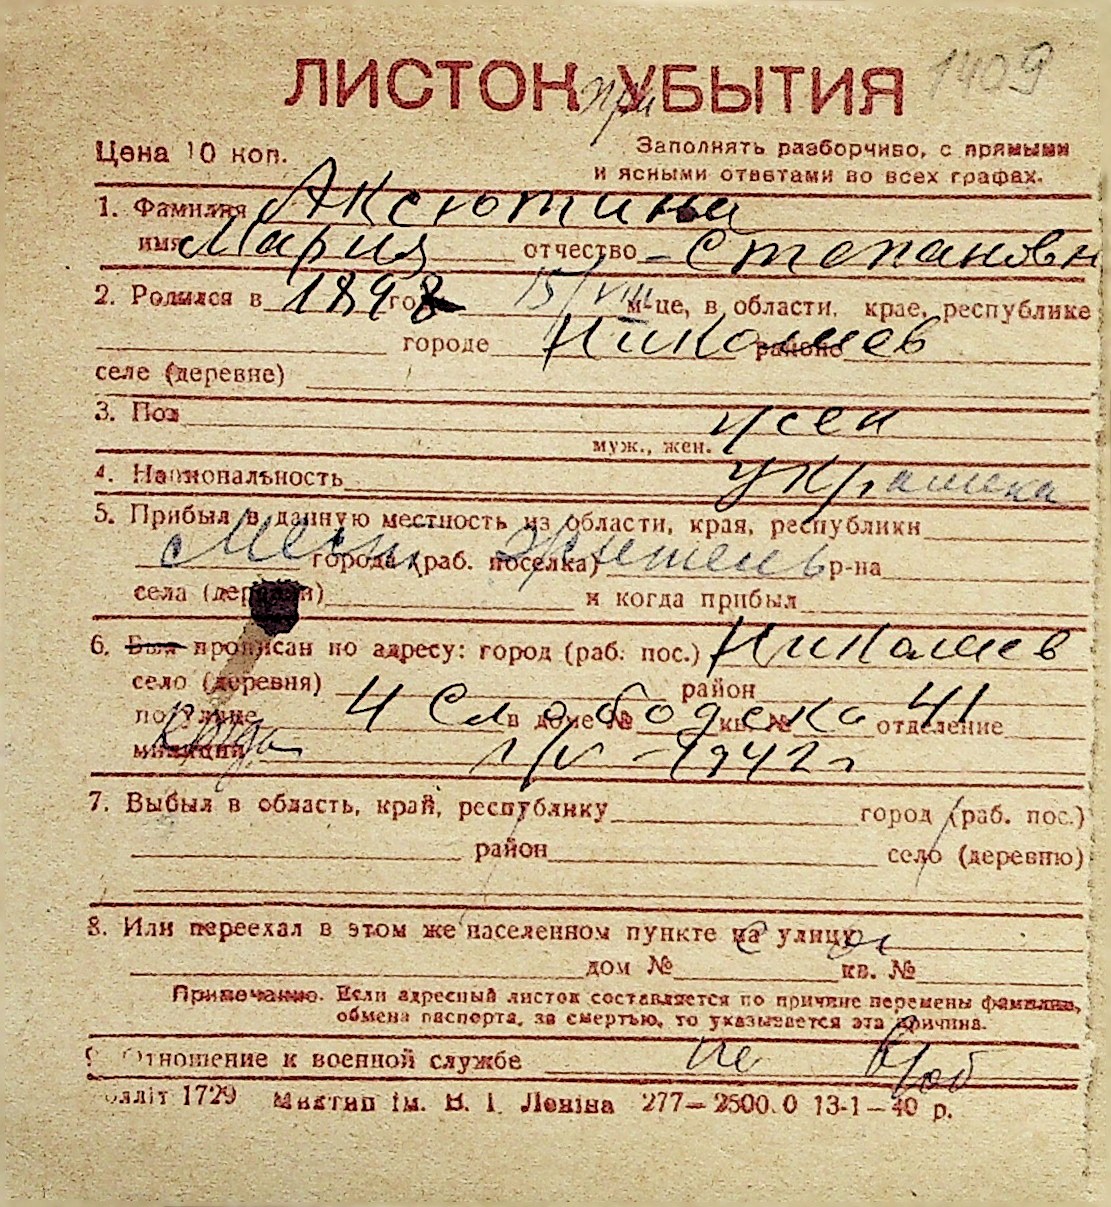 1409
ЛИСТОК при УБЫТИЯ
Цена 10 коп.
Заполнять разборчиво, с прямыми
и ясными ответами во всех графах.
1. Фамилия Аксютина
имя Мария отчество Степановн
2. Родился в 1898 го 15/VIII м-це, в области, крае, республике
городе Николаев районе
селе (деревне)
3. Пол жен
муж., жен.
4. Национальность украинка
5. Прибыл в данную местность из области, края, республики
Мест. житель
города (раб. поселка) р-на
села (деревни) и когда прибыл
6. Был прописан по адресу: город (раб. пос.) Николаев
село (деревня) район
по улице 4 Слободска 41 в доме № кв. № отделение
милиции 1/IV - 1942 г
7. Выбыл в область, край, республику город (раб. пос.)
район село (деревню)
8. Или переехал в этом же населенном пункте на улицу
дом № кв. №
Примечание. Если адресный листок составляется по причине перемены фамилии,
обмена паспорта, за смертью, то указывается эта причина.
9. Отношение к военной службе не
лліт 1729 Миктип ім. В. І. Леніна 277—2500.0 13-1—40 р.